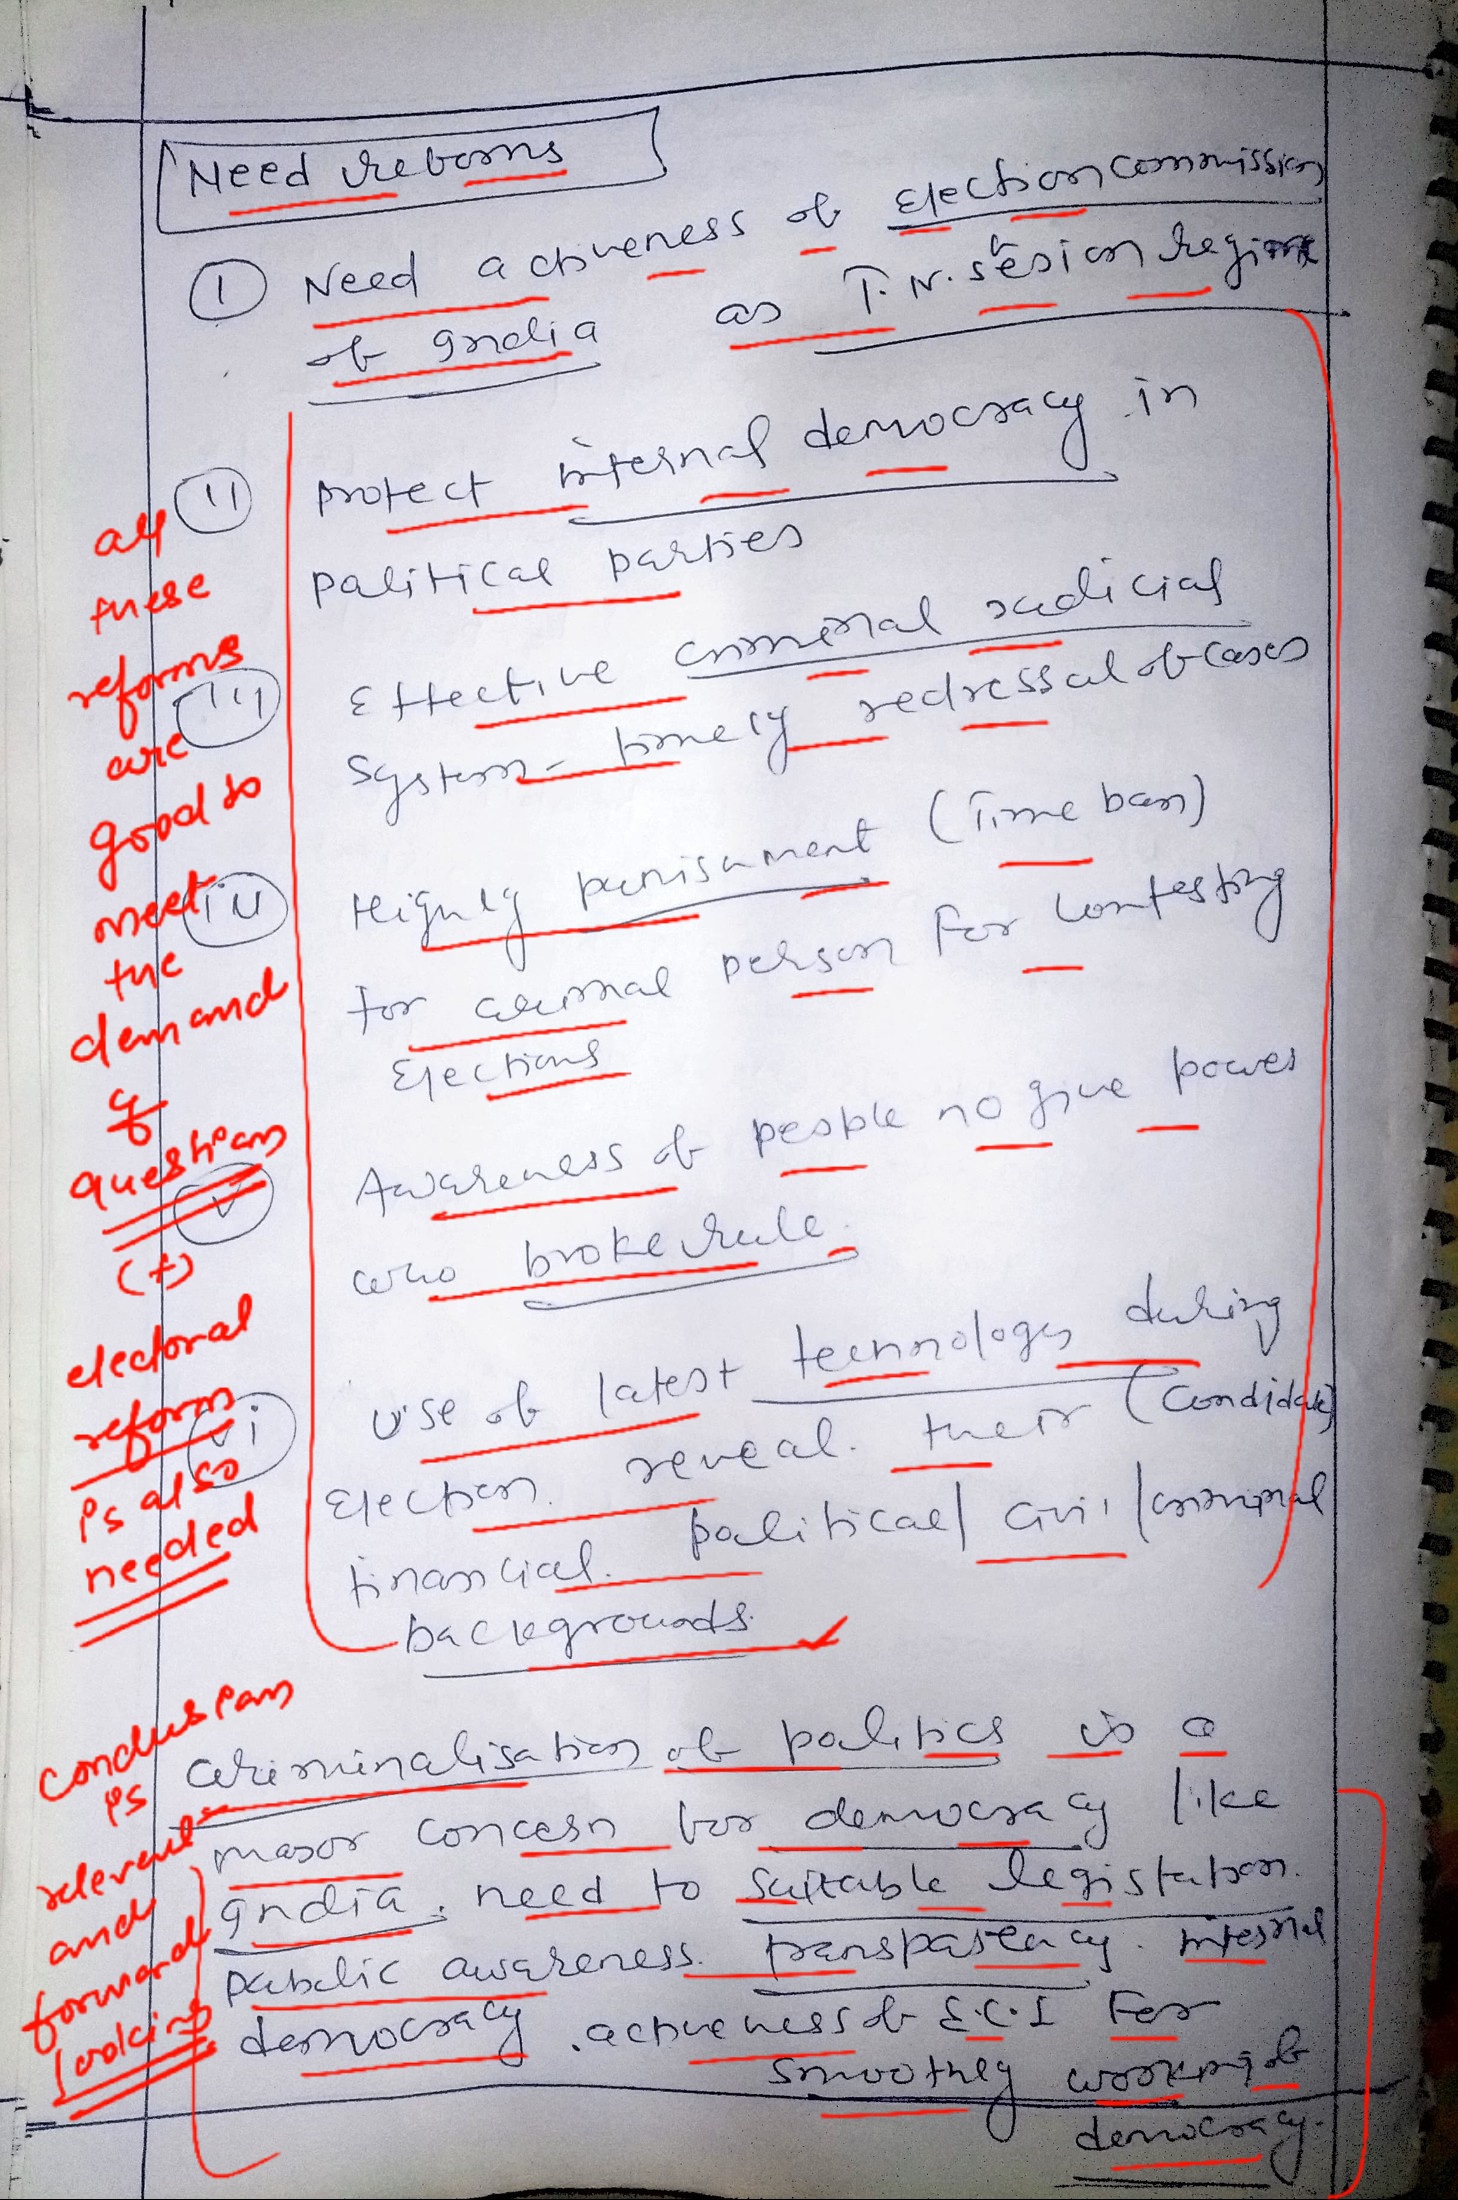 Need reborns
① Need activeness of Election commission
of India as T.N. Sesion regime
ii protect internal democracy in
political parties
iii Effective criminal judicial
System - timely redressal of cases
iv Highly punishment (Time ban)
for criminal person for contesting
Elections
v Awareness of people no give power
who broke rule.
vi Use of latest technology during
Election. reveal. their (Condidate)
financial. political/ civil / criminal
backgrounds.
criminalisation of politics is a
major concern for democracy like
India. need to suitable legislation.
Public awareness. transparency. internal
democracy. activeness of E.C.I For
smoothly working of
democracy.
all
these
reforms
are
good to
meet
the
demand
of
question
(+)
electoral
reform
is also
needed
conclusion
is
relevent
and
forward
looking